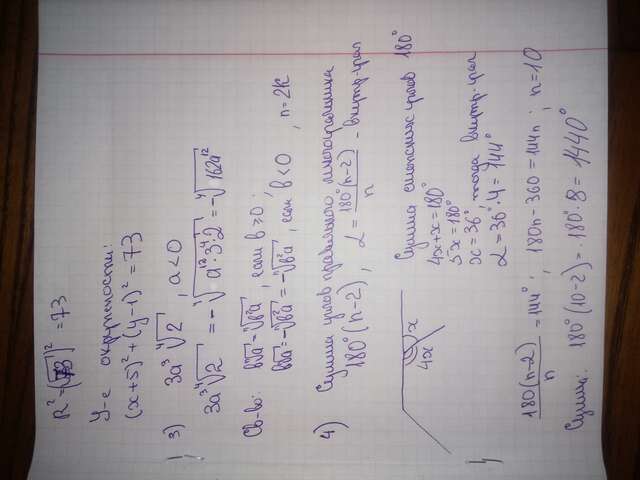 R² = (√73)² = 73
Ур-е окружности:
(x+5)² + (y-1)² = 73
3) 3a³ ∜2 , a<0
3a³ ∜2 = - ∜(a¹²·3⁴·2) = - ∜(162a¹²)
Св-во: b ⁿ√a = ⁿ√(bⁿa) , если b ≥ 0 ;
b ⁿ√a = - ⁿ√(bⁿa) = - ⁿ√(bⁿa) , если b<0 , n = 2k
4) Сумма углов правильного многоугольника
180°(n-2) , α = 180°(n-2)/n - внутр. угол
4x x
Сумма смежных углов 180°
4x+x = 180°
5x = 180°
x = 36°, тогда внутр. угол
α = 36°·4 = 144°
180(n-2)/n = 144° ; 180n - 360 = 144n ; n = 10
Сумма: 180°(10-2) = 180°·8 = 1440°